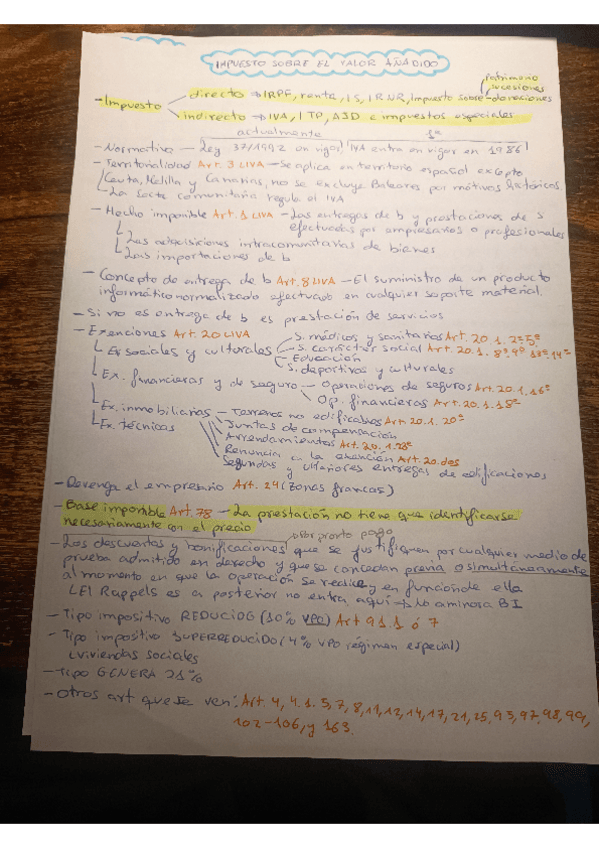 IMPUESTO SOBRE EL VALOR AÑADIDO
patrimonio
sucesiones
- Impuesto directo → IRPF, renta, IS, IRNR, Impuesto sobre donaciones
indirecto → IVA, ITP, AJD e impuestos especiales
actualmente
- Normativa - Ley 37/1992 en vigor IVA entra en vigor en 1986
- Territorialidad Art. 3 LIVA - Se aplica en territorio español excepto
Ceuta, Melilla y Canarias, no se excluye Baleares por motivos históricos.
- La Sexta comunitaria regula el IVA
- Hecho imponible Art. 1 LIVA - Las entregas de b y prestaciones de s
efectuadas por empresarios o profesionales
Las adquisiciones intracomunitarias de bienes
Las importaciones de b
- Concepto de entrega de b Art. 8 LIVA - El suministro de un producto
informático normalizado efectuado en cualquier soporte material.
- Si no es entrega de b es prestación de servicios
- Exenciones Art. 20 LIVA
S. médicos y sanitarios Art. 20.1.2º-5º
Ex sociales y culturales S. carácter social Art. 20.1. 8º 9º 13º 14º
Educación
S. deportivos y culturales
Ex. financieras y de seguro - Operaciones de seguros Art. 20.1.16º
Op. financieras Art. 20.1.18º
Ex. inmobiliarias - Terrenos no edificables Art. 20.1.20º
Ex. técnicas Juntas de compensación
Arrendamientos Art. 20.1.23º
Renuncia a la exención Art. 20.dos
Segundas y ulteriores entregas de edificaciones
- Devenga el empresario Art. 24 (zonas francas)
- Base imponible Art. 78 - La prestación no tiene que identificarse
necesariamente con el precio
por pronto pago
- Los descuentos y bonificaciones que se justifiquen por cualquier medio de
prueba admitido en derecho y que se concedan previa o simultáneamente
al momento en que la operación se realice y en función de ella
El Rappels es a posterior no entra aquí → lo aminora BI
- Tipo impositivo REDUCIDO (10% VPO) Art 91 1 ó 7
- Tipo impositivo SUPERREDUCIDO (4% VPO régimen especial)
viviendas sociales
- Tipo GENERA 21%
- Otros art que se ven: Art. 4, 4.1. 5, 7, 8, 11, 12, 14, 17, 21, 25, 93, 97, 98, 99,
102-106, y 163.